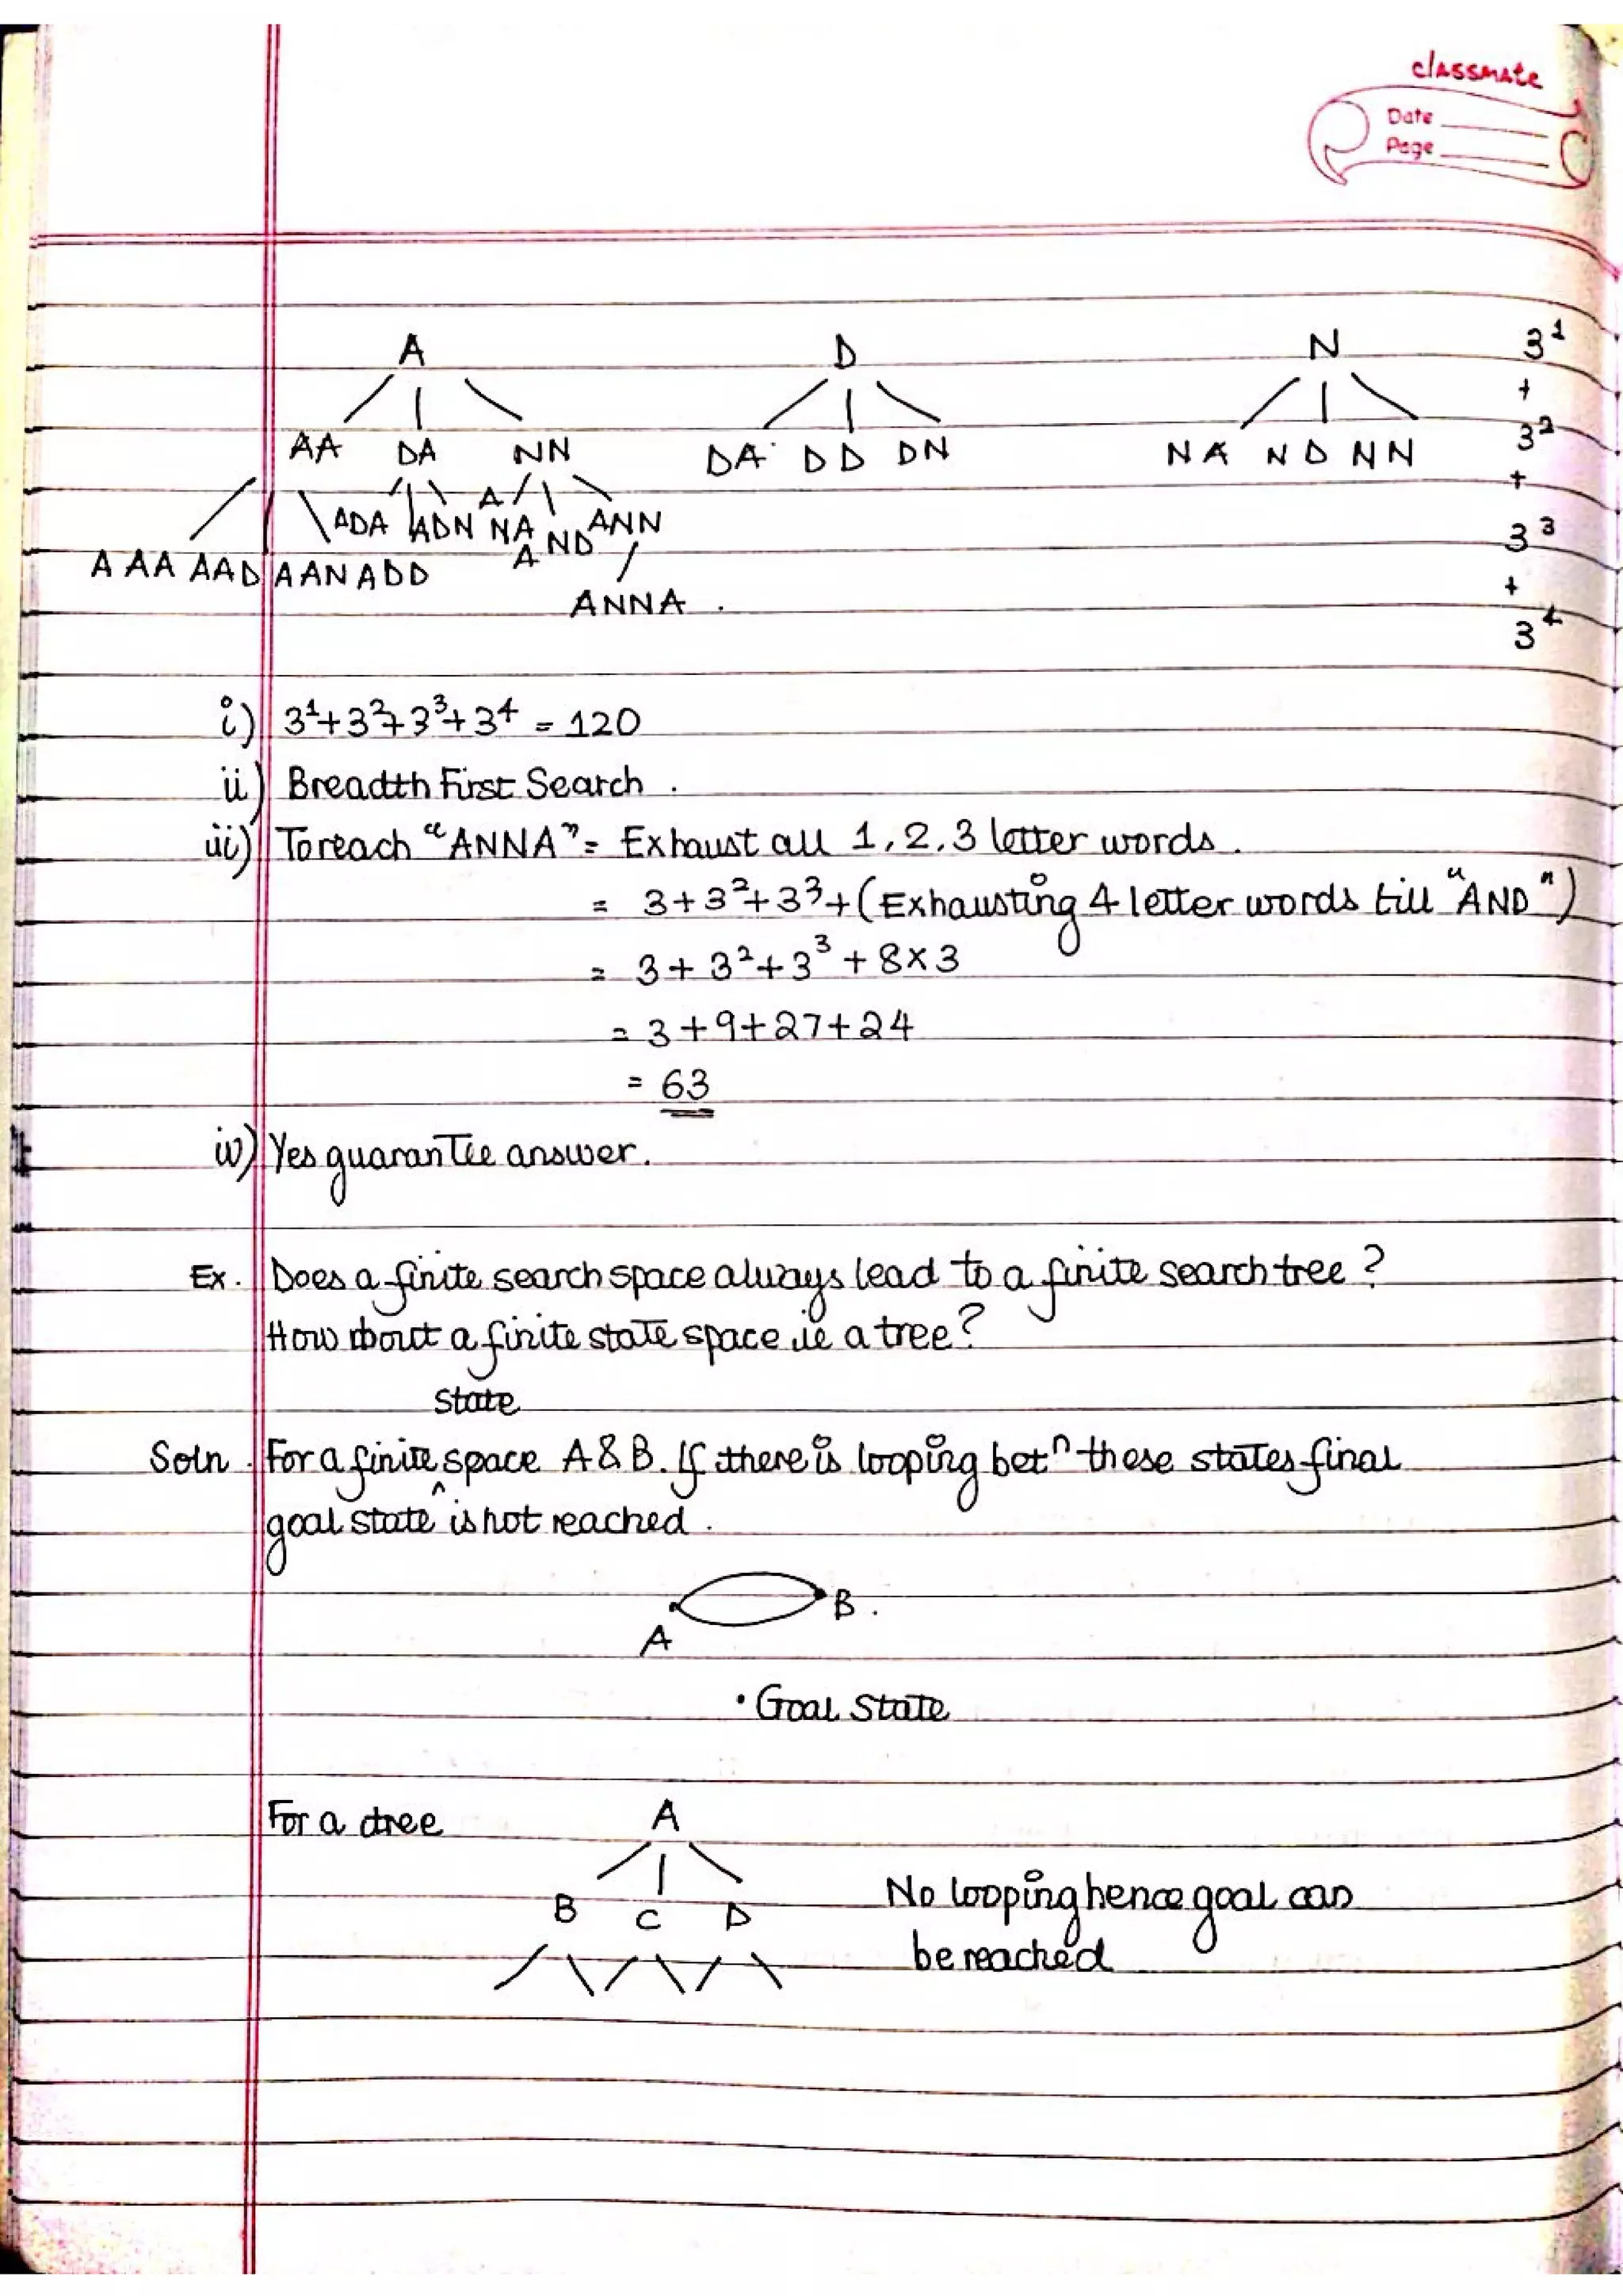 classmate
Date
Page
A D N 3¹
+
AA DA NN DA DD DN NA ND NN 3²
+
ADA ADN ANA AND ANN 3³
AAA AAD AAN ADD
+
ANNA . 3⁴
i) 3¹+3²+3³+3⁴ = 120
ii) Breadth First Search .
iii) To reach "ANNA" = Exhaust all 1, 2, 3 letter words .
= 3+3²+3³+(Exhausting 4 letter words till "AND")
= 3+3²+3³+8×3
= 3+9+27+24
= 63
iv) Yes guarantee answer .
Ex. Does a finite search space always lead to a finite search tree ?
How about a finite state space ie a tree ?
state
Soln . For a finite ^ space A & B . If there is looping betⁿ these states final
goal state is not reached .
B .
A
• Goal State
For a tree A
B C D No looping hence goal can
be reached